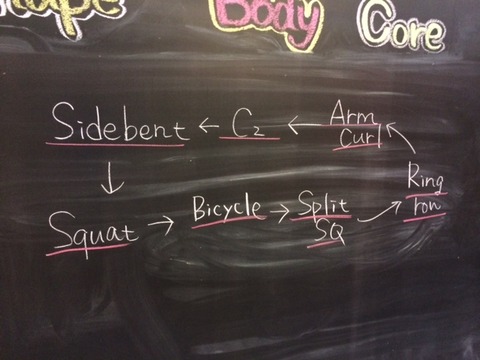 Body Core
Sidebent ← C2 ← Arm Curl
Squat → Bicycle → Split SQ
Ring row